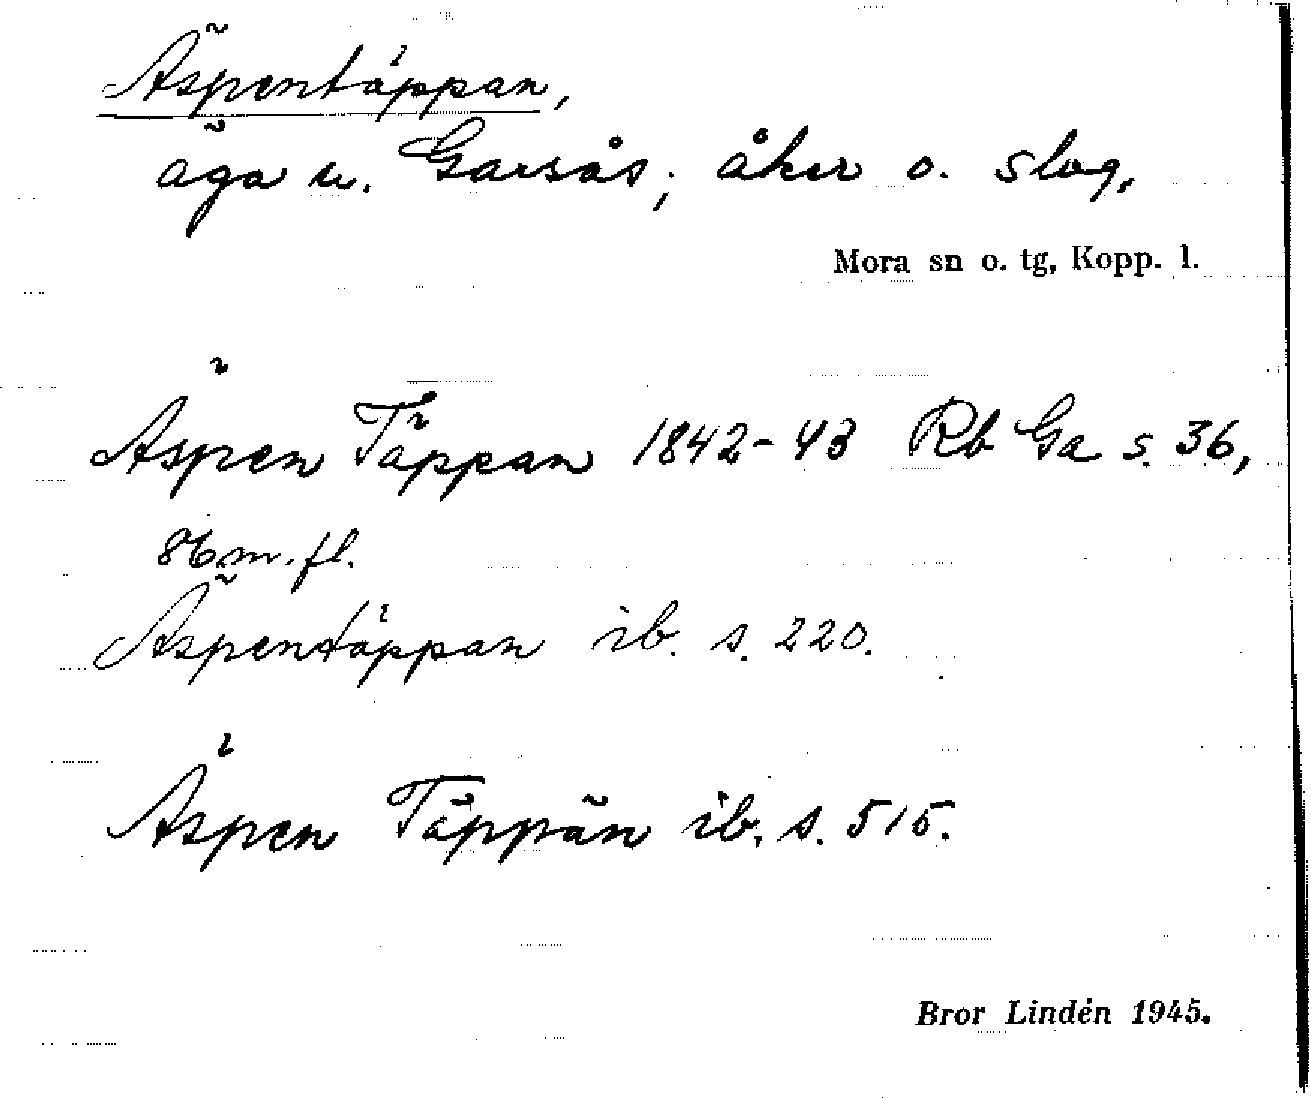 Äspentäppan,
äga u. Garsås; åker o. slog.
Mora sn o. tg, Kopp. l.
Äspen Täppan 1842-43 Rb Ga s. 36,
86 m. fl.
Äspentäppan ib. s. 220.
Äspen Täppän ib. s. 515.
Bror Lindén 1945.